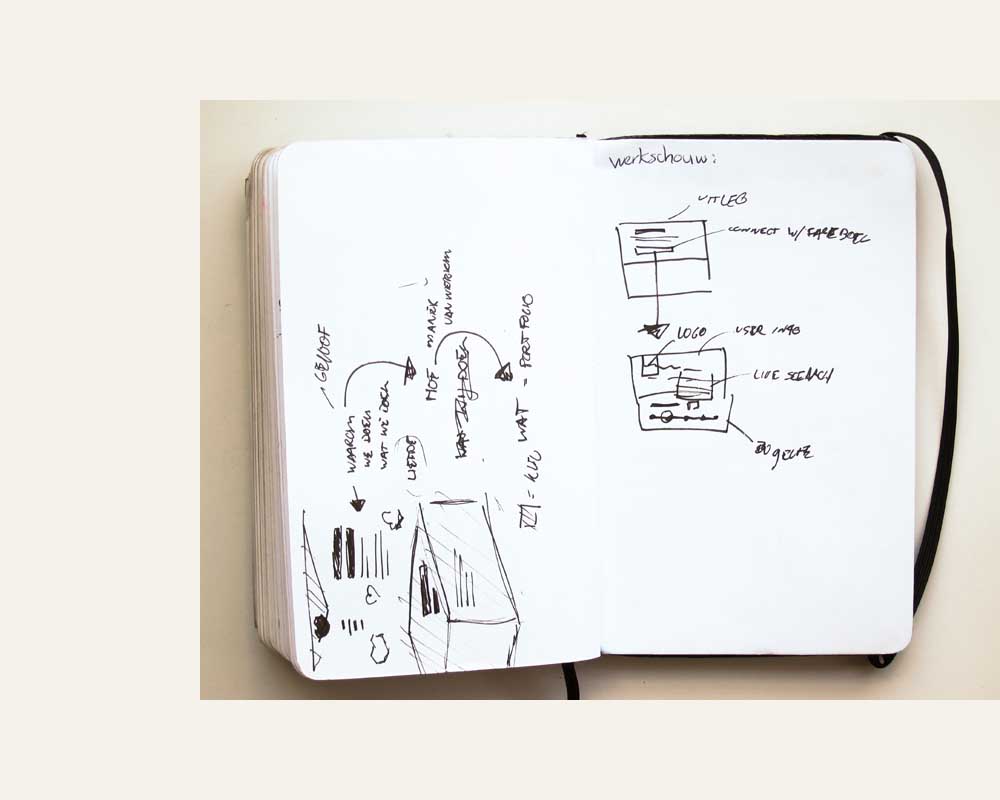 GELOOF
WAAROM
WE DOEN
WAT WE DOEN
LIEFDE
HOE
MANIER
VAN WERKEN
WAT = PORTFOLIO
werkschouw:
UITLEG
CONNECT W/ FACEBOOK
LOGO
USER INFO
LIVE SEARCH